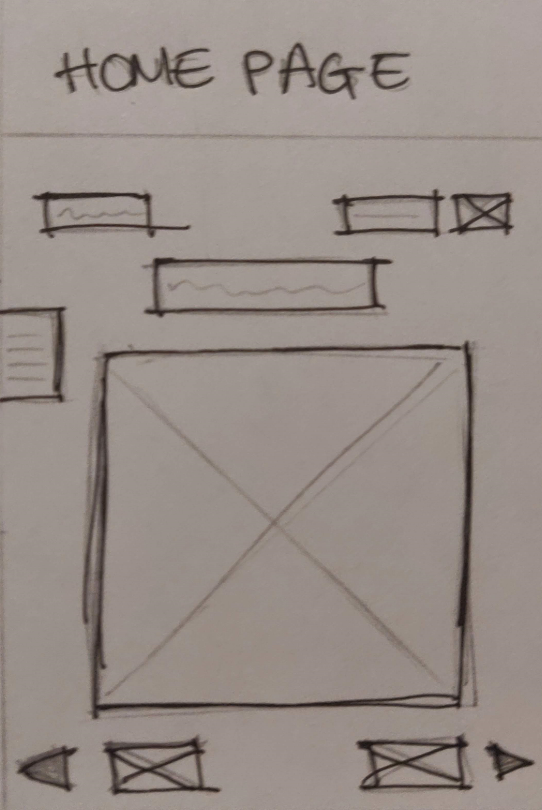 HOME PAGE